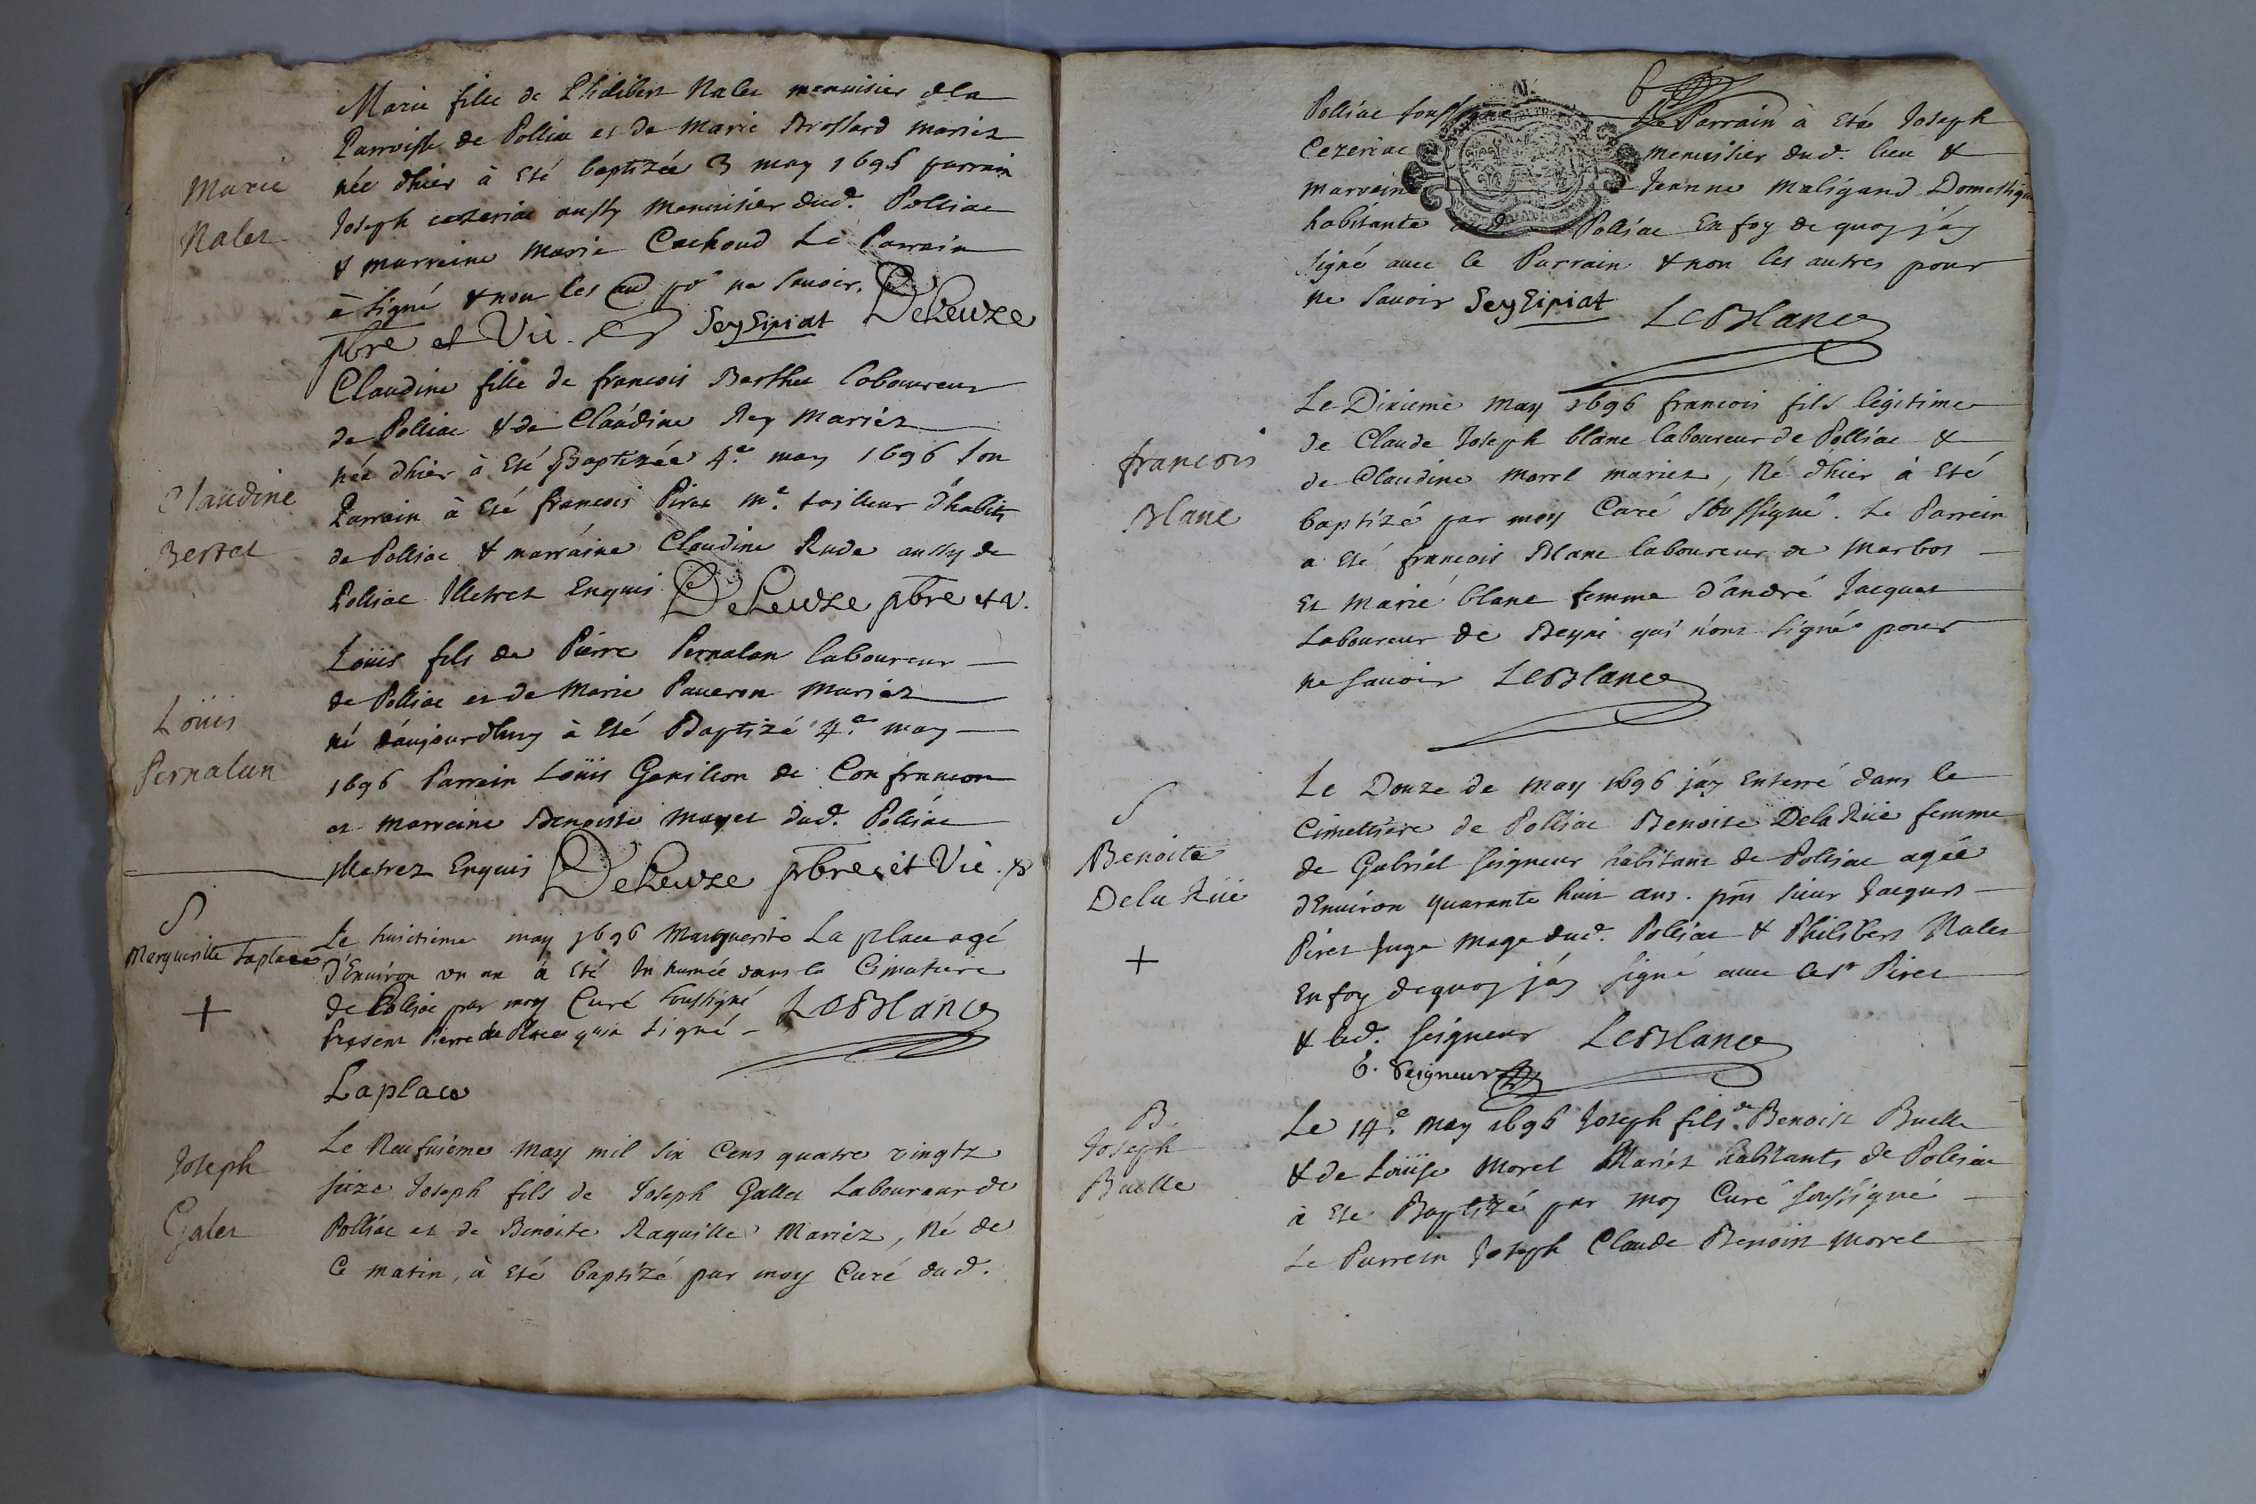 Marie fille de Philibert Nalet menuisier de la
Marie
Nalet
Parroisse de Polliac et de Marie Brossard mariez
née dhier à Eté baptizée 3 may 1696 parrain
Joseph cezeriac aussy menuisier dud. Polliac
& marraine Marie Cachoud Le Parrain
à signé & non les au pr ne savoir. DeLeuze
pbre et Vic. Seyzipiat
Claudine fille de francois Berthet laboureur
de Polliac & de Claudine Rey Mariez
Claudine
Bertet
née dhier à Eté Baptizée 4e may 1696 son
Parrain à Eté francois Piret Me tailleur d'habits
de Polliac & marraine Claudine Rude aussy de
Polliac Illetrez Enquis DeLeuze pbre et v.
Loüis
Pernalun
Loüis fils de Pierre Pernalon laboureur
de Polliac et de Marie Paveron Mariez
né daujourdhuy à Eté Baptizé 4e may
1696 Parrain Loüis Genillon de Confrancon
et marraine Benoiste Mayet dud. Polliac
Illetrez Enquis DeLeuze pbre et Vic.
S
Marguerite Laplace
+
Le huictieme may 1696 Marguerite La place agé
d'Environ un an à Eté Inhumée dans le Cimetiere
de Polliac par moy Curé soussigné LeBlanc
present Pierre de Place qui a signé
Laplace
Joseph
Galet
Le Neufuiéme May mil six Cens quatre vingtz
seize Joseph fils de Joseph Gallet Laboureur de
Polliac et de Benoite Raquille Mariéz, Né de
Ce matin, à Eté baptizé par moy Curé dud.
Polliac soussigné Le Parrain à Eté Joseph
Cezeriac menuisier dud. lieu &
marraine Jeanne Maligand Domestique
habitante aud. Polliac En foy de quoy j'ay
signé avec le Parrain & non les autres pour
ne savoir Seyzipiat LeBlanc
francois
Blanc
Le Dixieme May 1696 francois fils légitime
de Claude Joseph blanc laboureur de Polliac &
de Claudine Morel mariez, Né d'hier à Eté
baptizé par moy Curé soussigné. Le Parrein
a Eté francois Blanc laboureur de Marbos
Et Marie blanc femme d'andré Jacquet
Laboureur de Beyni qui n'ont signé pour
ne savoir LeBlanc
S
Benoite
De la Rüe
+
Le Douze de May 1696 j'ay Enterré dans le
Cimettiere de Polliac Benoite De la Rüe femme
de Gabriel Seigneur habitant de Polliac agée
d'Environ quarante huit ans. pnts sieur Jacques
Piret Juge Mage dud. Polliac & Philibert Nalet
En foy de quoy j'ay signé avec le sr Piret
& led. Seigneur LeBlanc
G. Seigneur
B
Joseph
Buelle
Le 14e May 1696 Joseph fils de Benoist Buelle
& de Loüise Morel Mariéz habitants de Polliac
à Eté Baptizé par moy Curé soussigné
Le Parrein Joseph Claude Benoist Morel